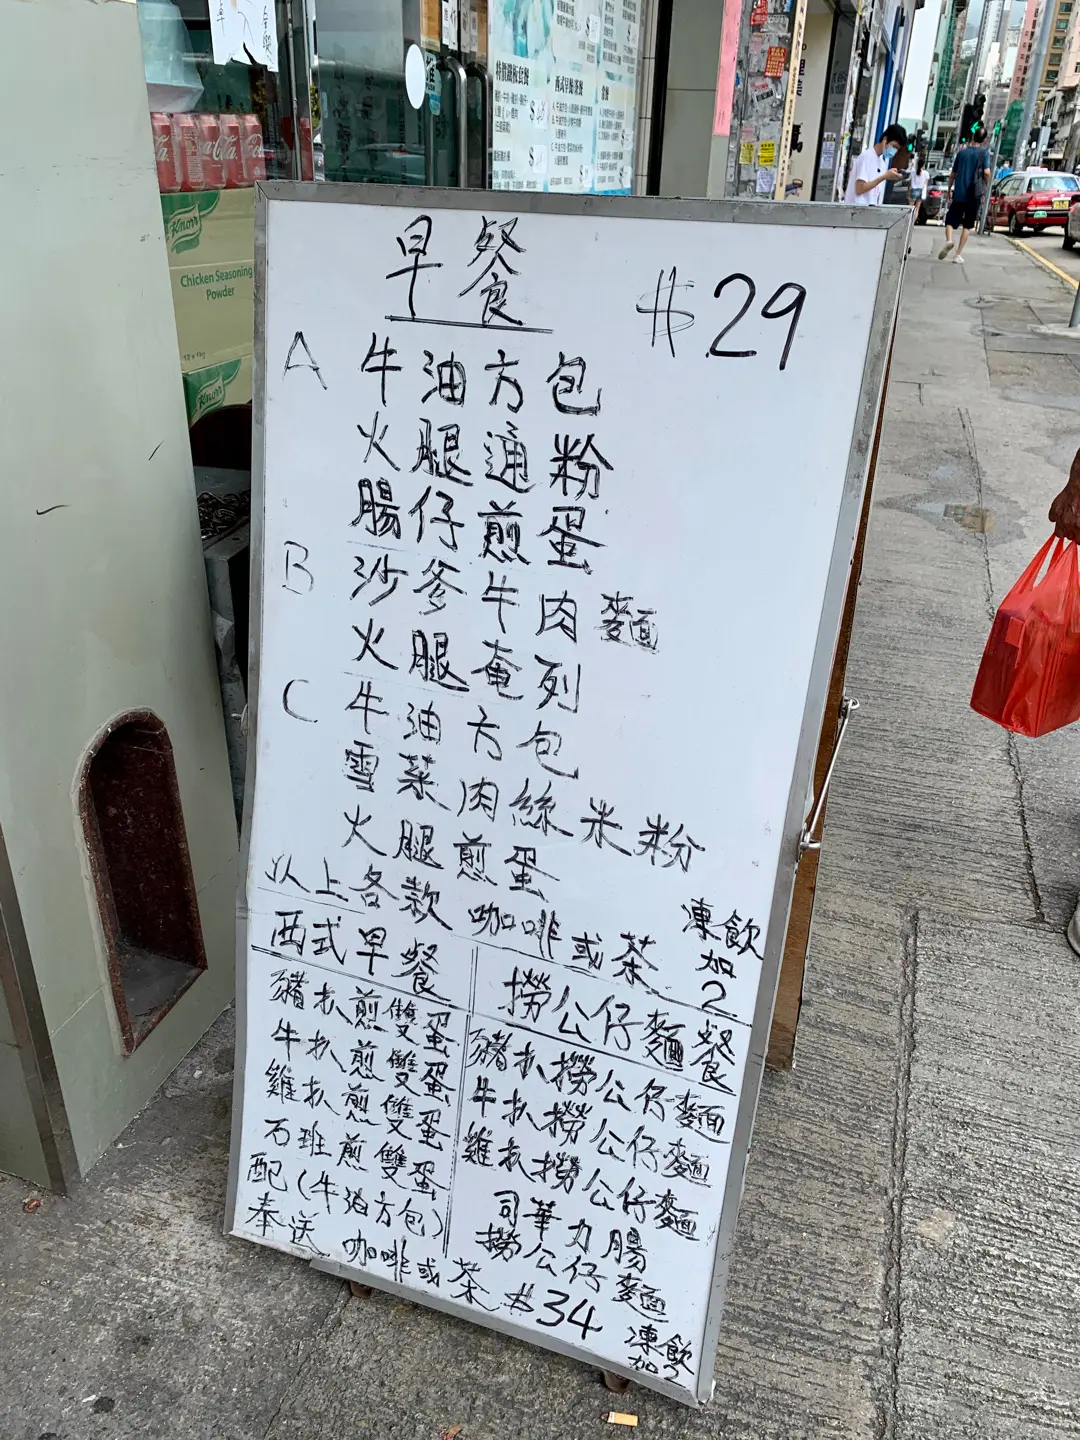 早餐
$29
A 牛油方包
火腿通粉
腸仔煎蛋
B 沙爹牛肉麵
火腿奄列
C 牛油方包
雪菜肉絲米粉
火腿煎蛋
以上各款 咖啡或茶 凍飲加2
西式早餐
豬扒煎雙蛋
牛扒煎雙蛋
雞扒煎雙蛋
石班煎雙蛋
配(牛油方包)
撈公仔麵餐
豬扒撈公仔麵
牛扒撈公仔麵
雞扒撈公仔麵
司華力腸
撈公仔麵
奉送 咖啡或茶 $34 凍飲加2
Knorr
Chicken Seasoning
Powder
Knorr
Coca-Cola
特價鐵板套餐
西式早餐茶餐
常餐